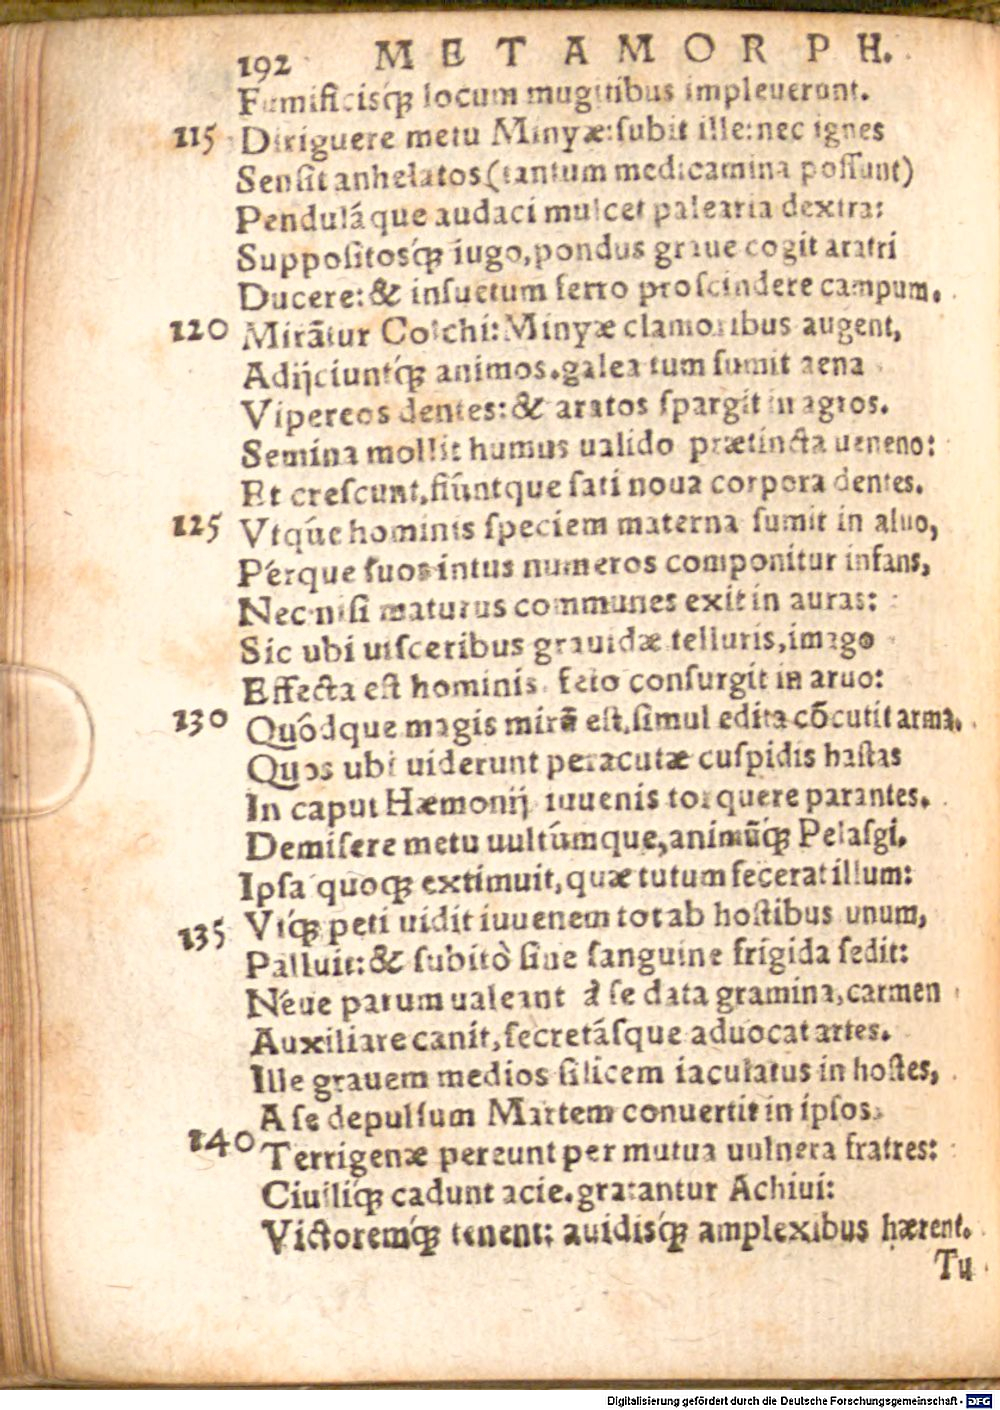 192 METAMORPH.
Fumificisq́; locum mugitibus impleuerunt.
115 Diriguere metu Minyæ: ſubit ille: nec ignes
Senſit anhelatos (tantum medicamina poſſunt)
Penduláque audaci mulcet palearia dextra:
Suppoſitosq́; iugo, pondus graue cogit aratri
Ducere: & inſuetum ferro proſcindere campum.
120 Mirãtur Colchi: Minyæ clamoribus augent,
Adijciuntq́; animos. galea tum ſumit aena
Vipereos dentes: & aratos ſpargit in agros.
Semina mollit humus ualido prætincta ueneno:
Et creſcunt, fiúntque ſati noua corpora dentes.
125 Vtq́ue hominis ſpeciem materna ſumit in aluo,
Pérque ſuos intus numeros componitur infans,
Nec niſi maturus communes exit in auras:
Sic ubi uiſceribus grauidæ telluris, imago
Effecta eſt hominis feto conſurgit in aruo:
130 Quódque magis mirũ eſt, ſimul edita cõcutit arma.
Quos ubi uiderunt peracutæ cuſpidis haſtas
In caput Hæmonij iuuenis torquere parantes.
Demiſere metu uultúmque, animũq́; Pelaſgi.
Ipſa quoq; extimuit, quæ tutum fecerat illum:
135 Vtq́; peti uidit iuuenem tot ab hoſtibus unum,
Palluit: & ſubitò ſine ſanguine frigida ſedit:
Néue parum ualeant à ſe data gramina, carmen
Auxiliare canit, ſecretáſque aduocat artes.
Ille grauem medios ſilicem iaculatus in hoſtes,
A ſe depulſum Martem conuertit in ipſos.
140 Terrigenæ pereunt per mutua uulnera fratres:
Ciuiliq́; cadunt acie. gratantur Achiui:
Victoremq́; tenent: auidisq́; amplexibus hærent.
Tu
Digitalisierung gefördert durch die Deutsche Forschungsgemeinschaft - DFG